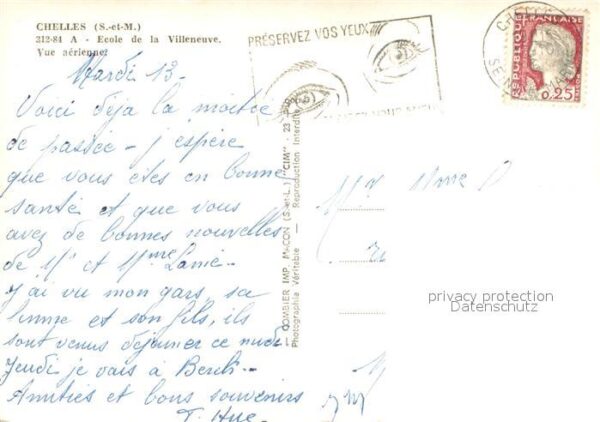 CHELLES (S.-et-M.)
312-84 A - Ecole de la Villeneuve.
Vue aérienne
Mardi 13-
Voici déja la moitié
de passée - j'espère
que vous êtes en bonne
santé et que vous
avez de bonnes nouvelles
de Mr et Mme
J'ai vu mon gars, sa
femme et son fils, ils
sont venus déjeuner ce midi
Jeudi je vais à
Amitiés et bons souvenirs
T. Hue
COMBIER IMP. MACON (S.-et-L.) "CIM"
Photographie Véritable - Reproduction Interdite
PRÉSERVEZ VOS YEUX
CHELLES
REPUBLIQUE FRANÇAISE
0,25
Mr Mme
privacy protection
Datenschutz